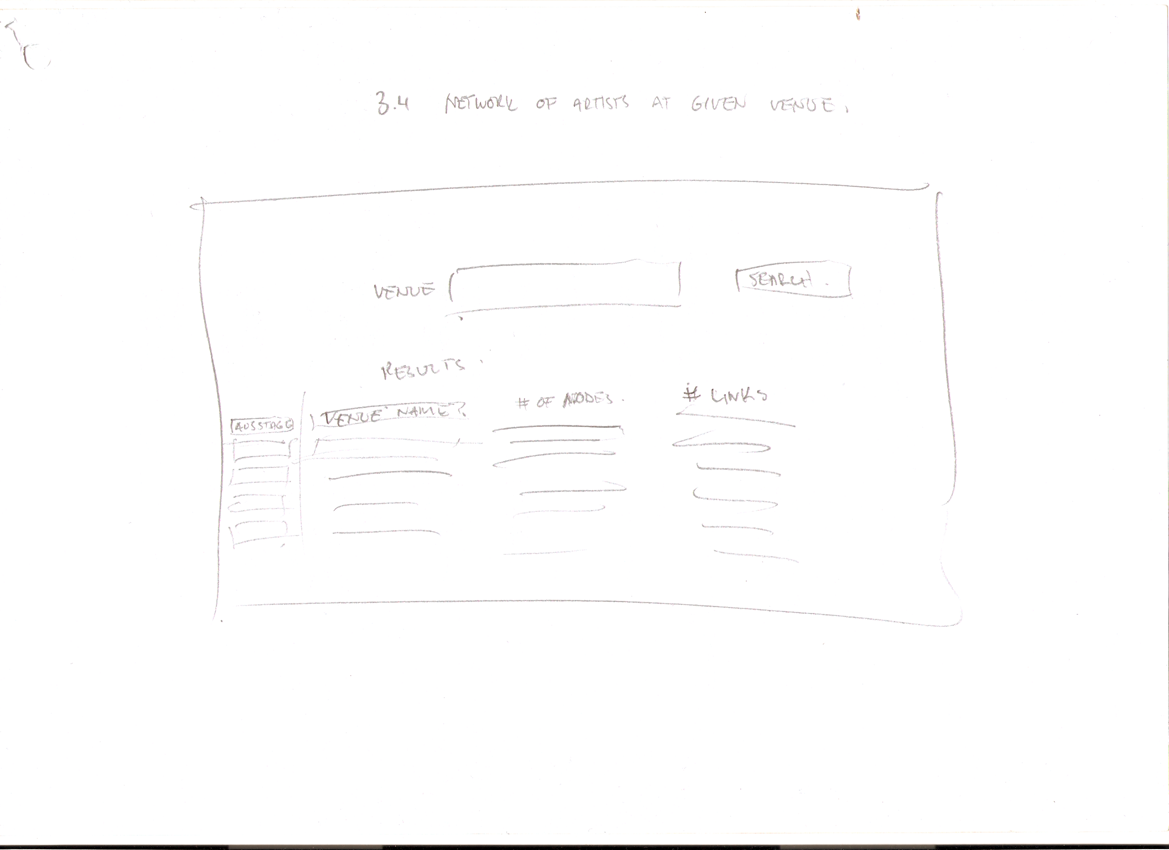 3.4 NETWORK OF ARTISTS AT GIVEN VENUE.
VENUE
SEARCH.
RESULTS.
AUSSTAGE
VENUE NAME?
# OF NODES.
# LINKS